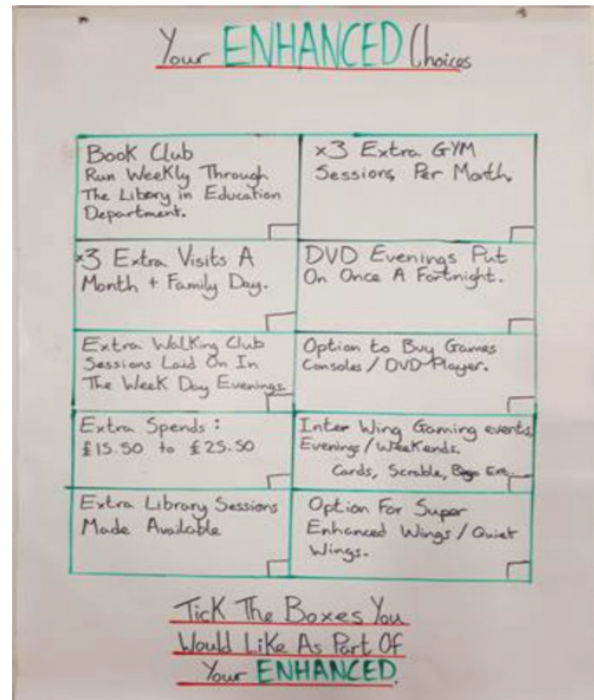 Your ENHANCED Choices
Book Club
Run Weekly Through
The Libery in Education
Department.
x3 Extra GYM
Sessions Per Month.
x3 Extra Visits A
Month + Family Day.
DVD Evenings Put
On Once A Fortnight.
Extra Walking Club
Sessions Laid On In
The Week Day Evenings.
Option to Buy Games
Consoles / DVD Player.
Extra Spends :
£15.50 to £25.50
Inter Wing Gaming events
Evenings / Weekends.
Cards, Scrable,
Extra Library Sessions
Made Available
Option For Super
Enhanced Wings / Quiet
Wings.
Tick The Boxes You
Would Like As Part Of
Your ENHANCED.